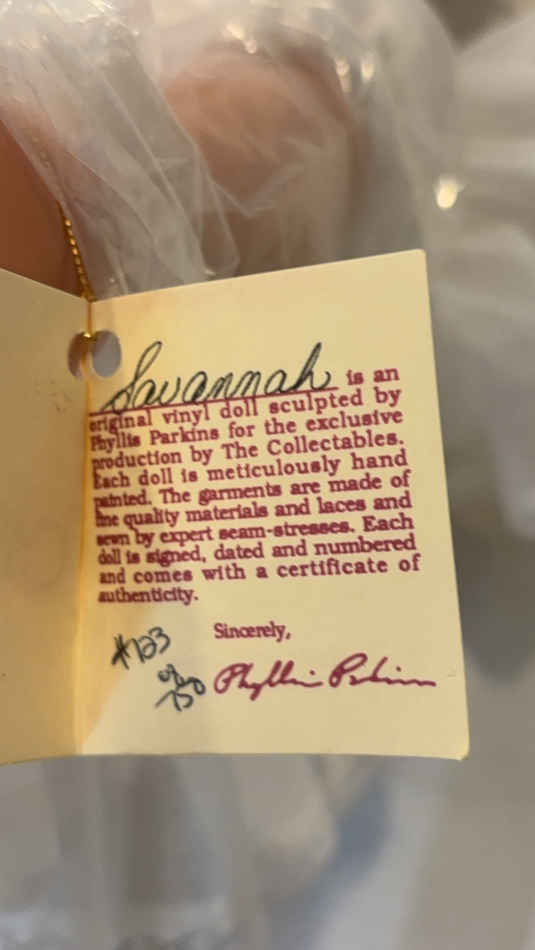 Savannah is an
original vinyl doll sculpted by
Phyllis Parkins for the exclusive
production by The Collectables.
Each doll is meticulously hand
painted. The garments are made of
fine quality materials and laces and
sewn by expert seam-stresses. Each
doll is signed, dated and numbered
and comes with a certificate of
authenticity.
Sincerely,
#123
of
750
Phyllis Parkins